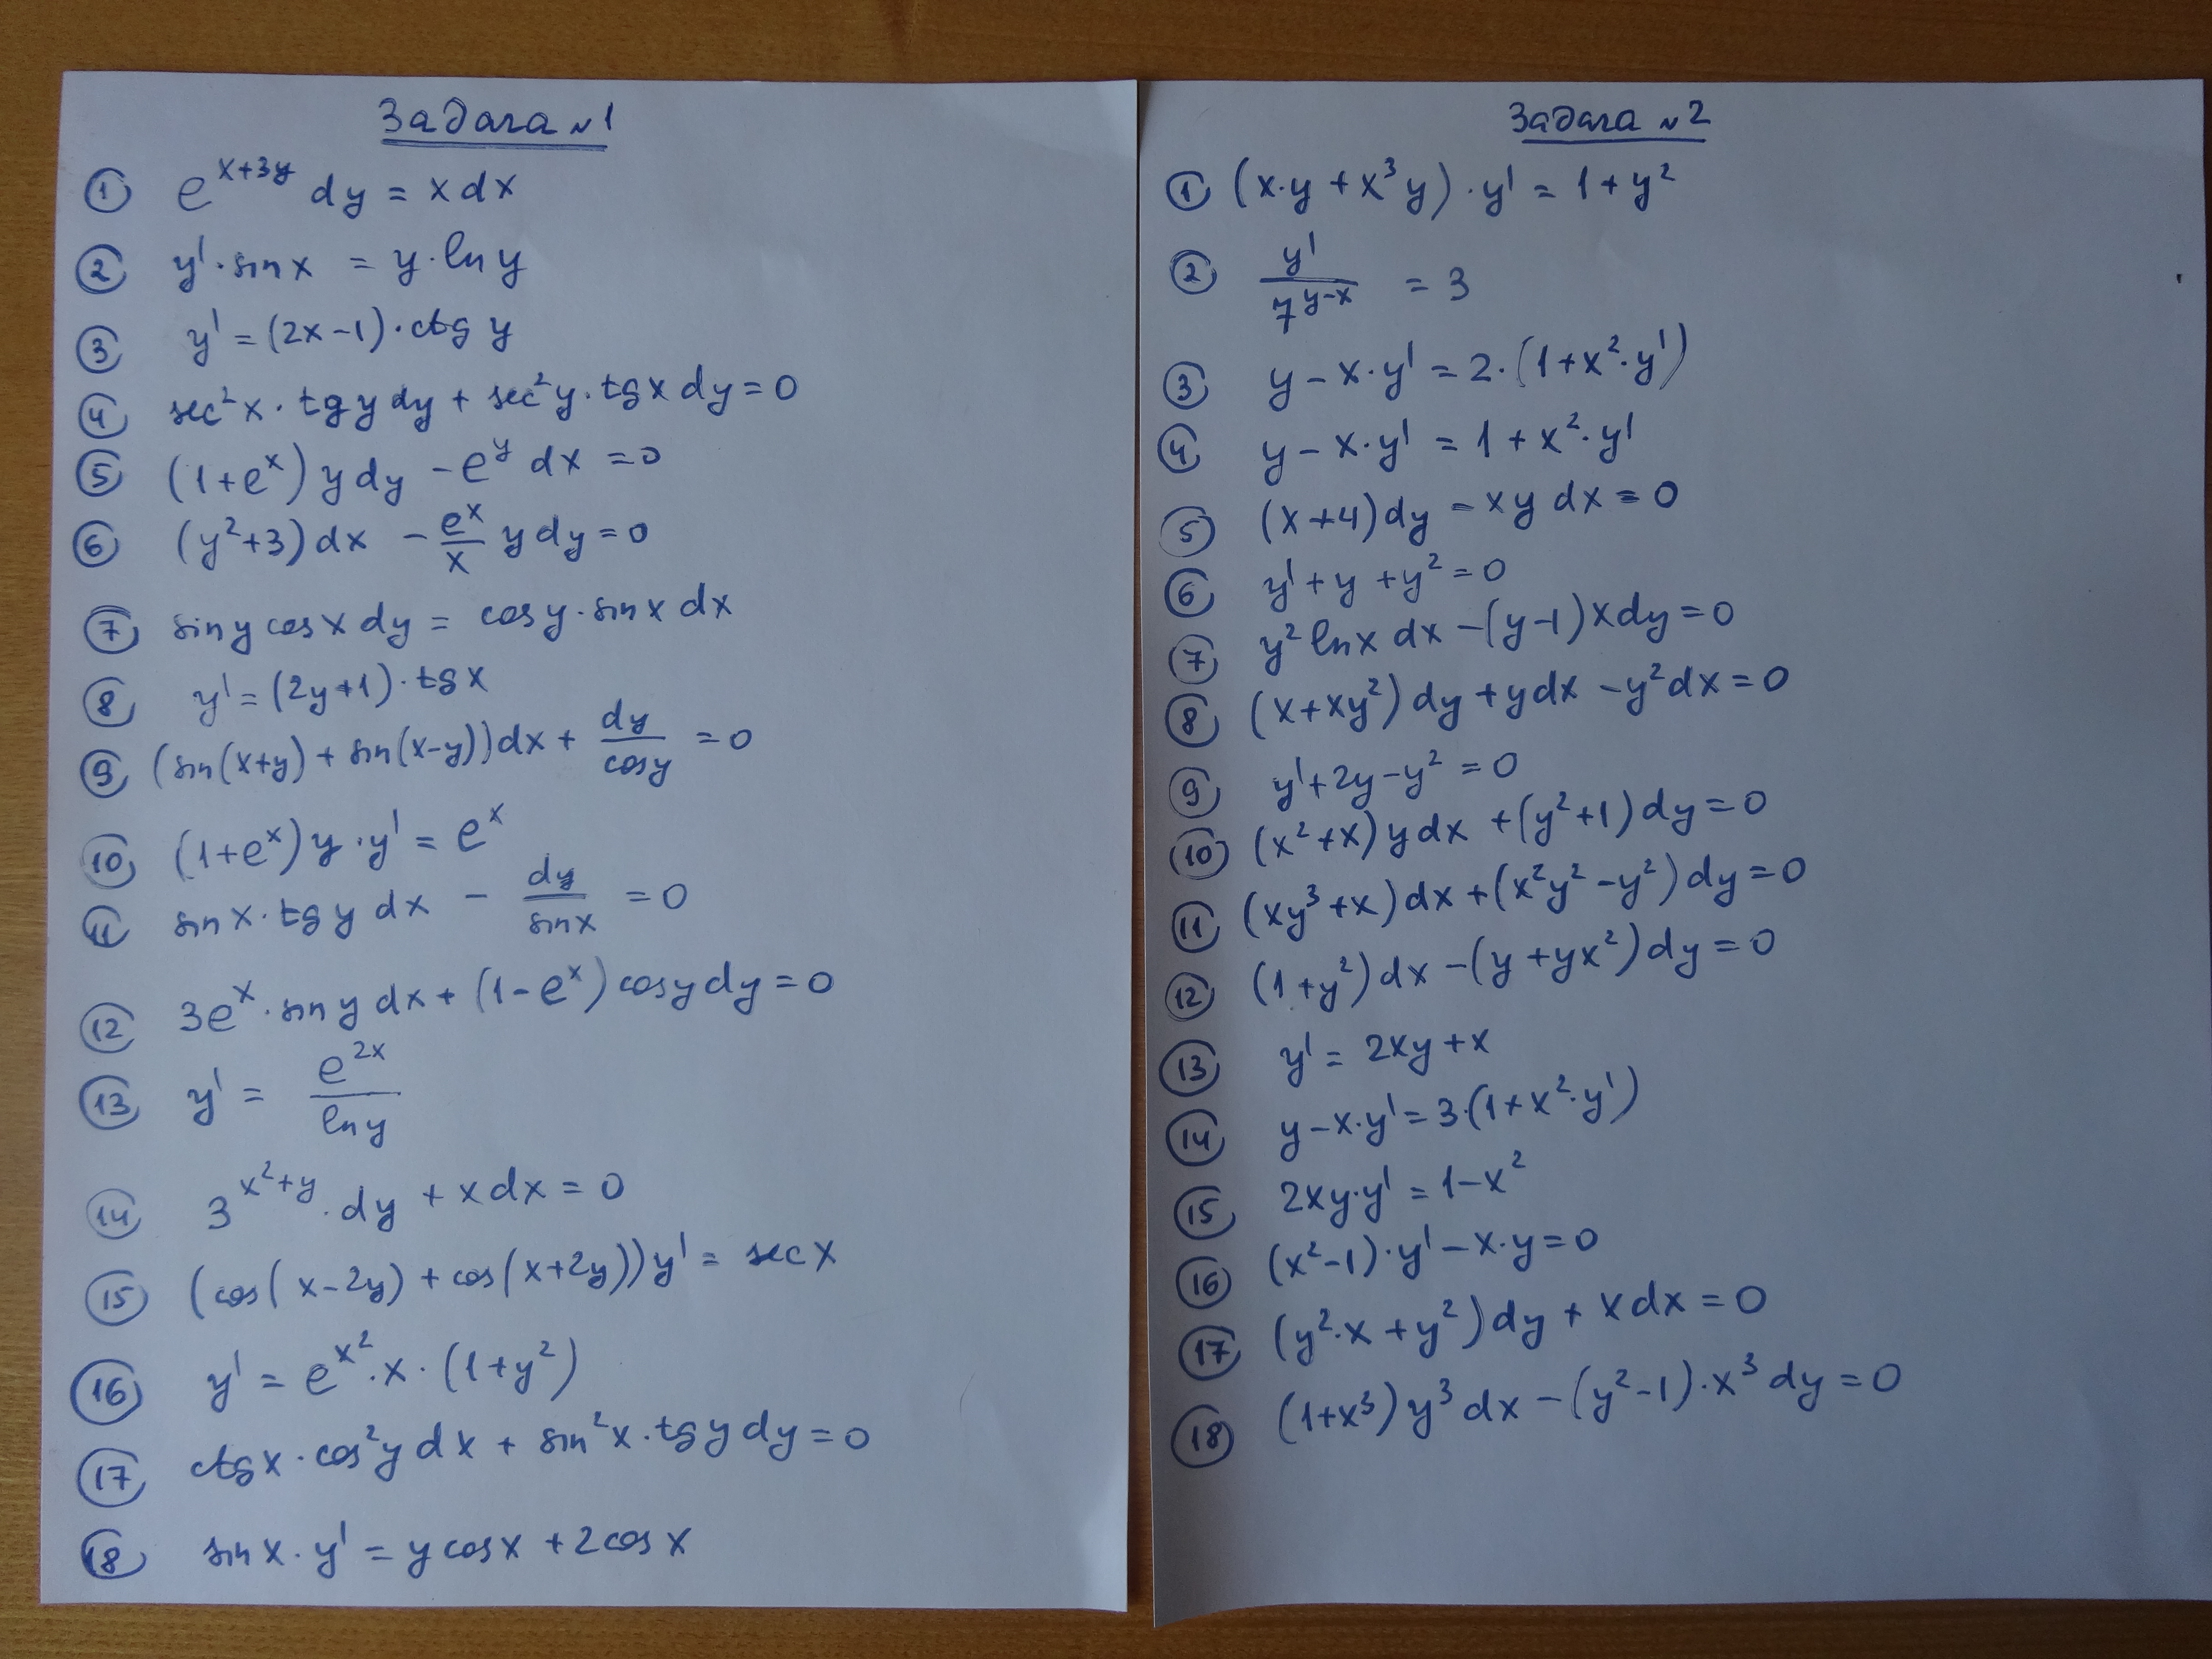 Задача №1
① e^{x+3y} dy = x dx
② y' · sin x = y · ln y
③ y' = (2x-1) · ctg y
④ sec² x · tg y dy + sec² y · tg x dy = 0
⑤ (1+e^x) y dy - e^y dx = 0
⑥ (y²+3) dx - \frac{e^x}{x} y dy = 0
⑦ sin y cos x dy = cos y · sin x dx
⑧ y' = (2y+1) · tg x
⑨ (sin(x+y) + sin(x-y)) dx + \frac{dy}{cos y} = 0
⑩ (1+e^x) y · y' = e^x
⑪ sin x · tg y dx - \frac{dy}{sin x} = 0
⑫ 3e^x · sin y dx + (1-e^x) cos y dy = 0
⑬ y' = \frac{e^{2x}}{ln y}
⑭ 3^{x²+y} · dy + x dx = 0
⑮ (cos(x-2y) + cos(x+2y)) y' = sec x
⑯ y' = e^{x²} · x · (1+y²)
⑰ ctg x · cos² y dx + sin² x · tg y dy = 0
⑱ sin x · y' = y cos x + 2 cos x
Задача №2
① (x·y + x³y) · y' = 1+y²
② \frac{y'}{7^{y-x}} = 3
③ y - x·y' = 2·(1+x²·y')
④ y - x·y' = 1 + x²·y'
⑤ (x+4) dy - xy dx = 0
⑥ y' + y + y² = 0
⑦ y² ln x dx - (y-1) x dy = 0
⑧ (x+xy²) dy + y dx - y² dx = 0
⑨ y' + 2y - y² = 0
⑩ (x²+x) y dx + (y²+1) dy = 0
⑪ (xy³+x) dx + (x²y²-y²) dy = 0
⑫ (1+y²) dx - (y+yx²) dy = 0
⑬ y' = 2xy + x
⑭ y - x·y' = 3·(1+x²·y')
⑮ 2xy·y' = 1-x²
⑯ (x²-1)·y' - x·y = 0
⑰ (y²·x + y²) dy + x dx = 0
⑱ (1+x³) y³ dx - (y²-1)·x³ dy = 0